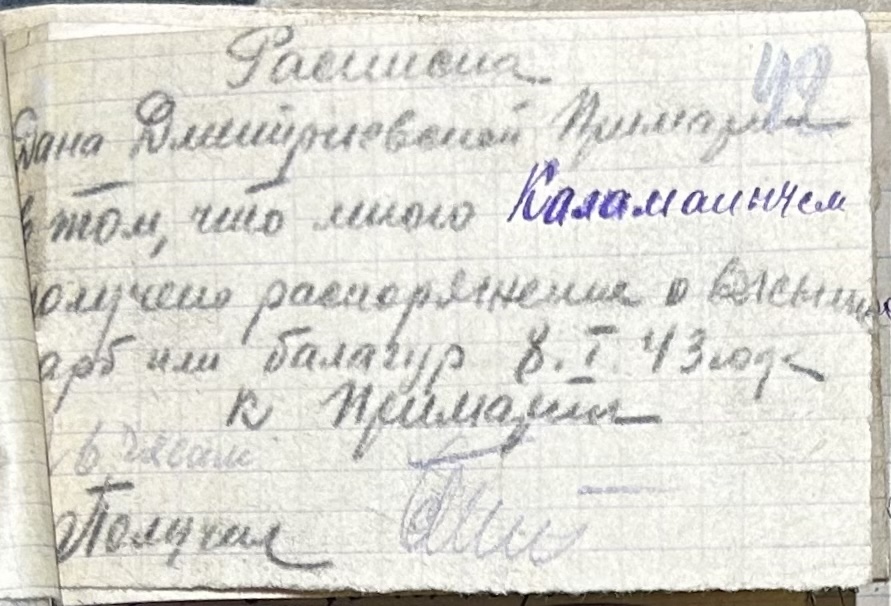 Расписка
42
Дана Дмитриевской Примарии
в том, что мною Каламаничем
получено распоряжение о высылке
арб или балагур 8. I. 43 года
к Примарии
6 часам
Получил